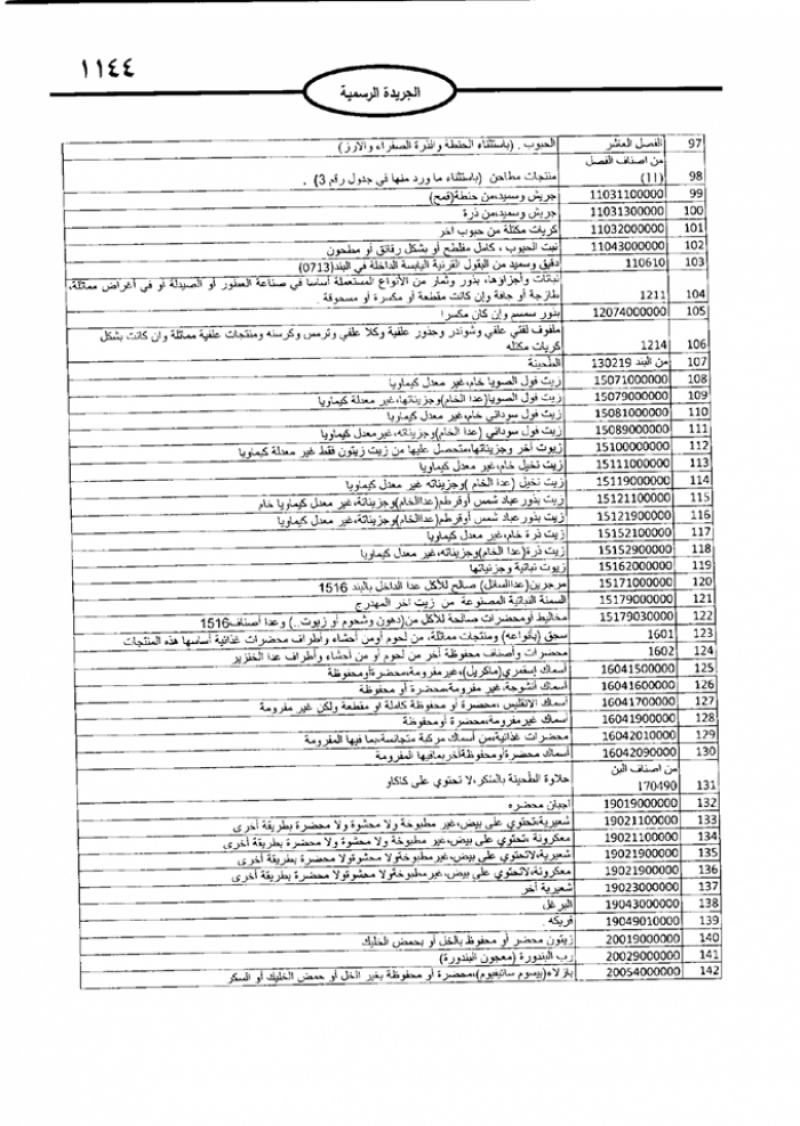 ١١٤٤
الجريدة الرسمية
97 الفصل العاشر الحبوب . (باستثناء الحنطة والذرة الصفراء والارز)
من اصناف الفصل
98 (11) منتجات مطاحن (باستثناء ما ورد منها في جدول رقم 3) .
99 11031100000 جريش وسميد،من حنطة(قمح)
100 11031300000 جريش وسميد،من ذرة
101 11032000000 كريات مكتلة من حبوب اخر
102 11043000000 نبت الحبوب ، كامل مفلطح أو بشكل رقائق أو مطحون
103 110610 دقيق وسميد من البقول القرنية اليابسة الداخلة في البند(0713)
نباتات وأجزاؤها، بذور وثمار من الأنواع المستعملة أساسا في صناعة العطور او الصيدلة او في أغراض مماثلة،
104 1211 طازجة أو جافة وإن كانت مقطعة أو مكسرة أو مسحوقة .
105 12074000000 بذور سمسم وإن كان مكسرا
ملفوف لفتي علفي وشوندر وجذور علفية وكلا علفي وترمس وكرسنه ومنتجات علفية مماثلة وان كانت بشكل
106 1214 كريات مكتله
107 من البند 130219 الطّحينة
108 15071000000 زيت فول الصويا خام،غير معدل كيماويا
109 15079000000 زيت فول الصويا(عدا الخام)وجزيئاتها،غير معدلة كيماويا
110 15081000000 زيت فول سوداني خام،غير معدل كيماويا
111 15089000000 زيت فول سوداني (عدا الخام)وجزيئاته،غيرمعدل كيماويا
112 15100000000 زيوت أخر وجزيئاتها،متحصل عليها من زيت زيتون فقط غير معدلة كيماويا
113 15111000000 زيت نخيل خام،غير معدل كيماويا
114 15119000000 زيت نخيل (عدا الخام )وجزيئاته غير معدل كيماويا
115 15121100000 زيت بذور عباد شمس أوقرطم(عداالخام)وجزيئاتة،غير معدل كيماويا خام
116 15121900000 زيت بذور عباد شمس أوقرطم(عداالخام)وجزيئاتة،غير معدل كيماويا
117 15152100000 زيت ذرة خام،غير معدل كيماويا
118 15152900000 زيت ذرة(عدا الخام)وجزيئاته،غير معدل كيماويا
119 15162000000 زيوت نباتية وجزئياتها
120 15171000000 مرجرين(عداالسائل) صالح للأكل عدا الداخل بالبند 1516
121 15179000000 السمنة النباتية المصنوعة من زيت اخر المهدرج
122 15179030000 مخاليط أومحضرات صالحة للأكل من(دهون وشحوم أو زيوت..) وعدا أصناف1516
123 1601 سجق (بأنواعه) ومنتجات مماثلة، من لحوم أومن أحشاء وأطراف محضرات غذائية أساسها هذه المنتجات
124 1602 محضرات وأصناف محفوظة أخر من لحوم أو من أحشاء وأطراف عدا الخنزير
125 16041500000 أسماك إسقمري(ماكريل)،غيرمفرومة،محضرة أومحفوظة
126 16041600000 أسماك أنشوجة،غير مفرومة،محضرة أو محفوظة
127 16041700000 أسماك الانقليس ،محضرة أو محفوظة كاملة او مقطعة ولكن غير مفرومة
128 16041900000 أسماك غيرمفرومة،محضرة أومحفوظة
129 16042010000 محضرات غذائية،من أسماك مركبة متجانسة،بما فيها المفرومة
130 16042090000 أسماك محضرة أومحفوظةأخربمافيها المفرومة
من اصناف البن
131 170490 حلاوة الطّحينة بالسكر،لا تحتوي على كاكاو
132 19019000000 اجبان محضره
133 19021100000 شعيرية،تحتوي على بيض،غير مطبوخة ولا محشوة ولا محضرة بطريقة أخرى
134 19021100000 معكرونة ،تحتوي على بيض،غير مطبوخة ولا محشوة ولا محضرة بطريقة أخرى
135 19021900000 شعيرية،لاتحتوي على بيض،غيرمطبوخةولا محشوةولا محضرة بطريقة أخرى
136 19021900000 معكرونة،لاتحتوي على بيض،غيرمطبوخةولا محشوةولا محضرة بطريقة أخرى
137 19023000000 شعيرية أخر
138 19043000000 البرغل
139 19049010000 فريكه .
140 20019000000 زيتون محضر أو محفوظ بالخل أو بحمض الخليك
141 20029000000 رب البندورة (معجون البندورة)
142 20054000000 بازلاء(بيسوم ساتيفيوم)،محضرة أو محفوظة بغير الخل أو حمض الخليك أو السكر